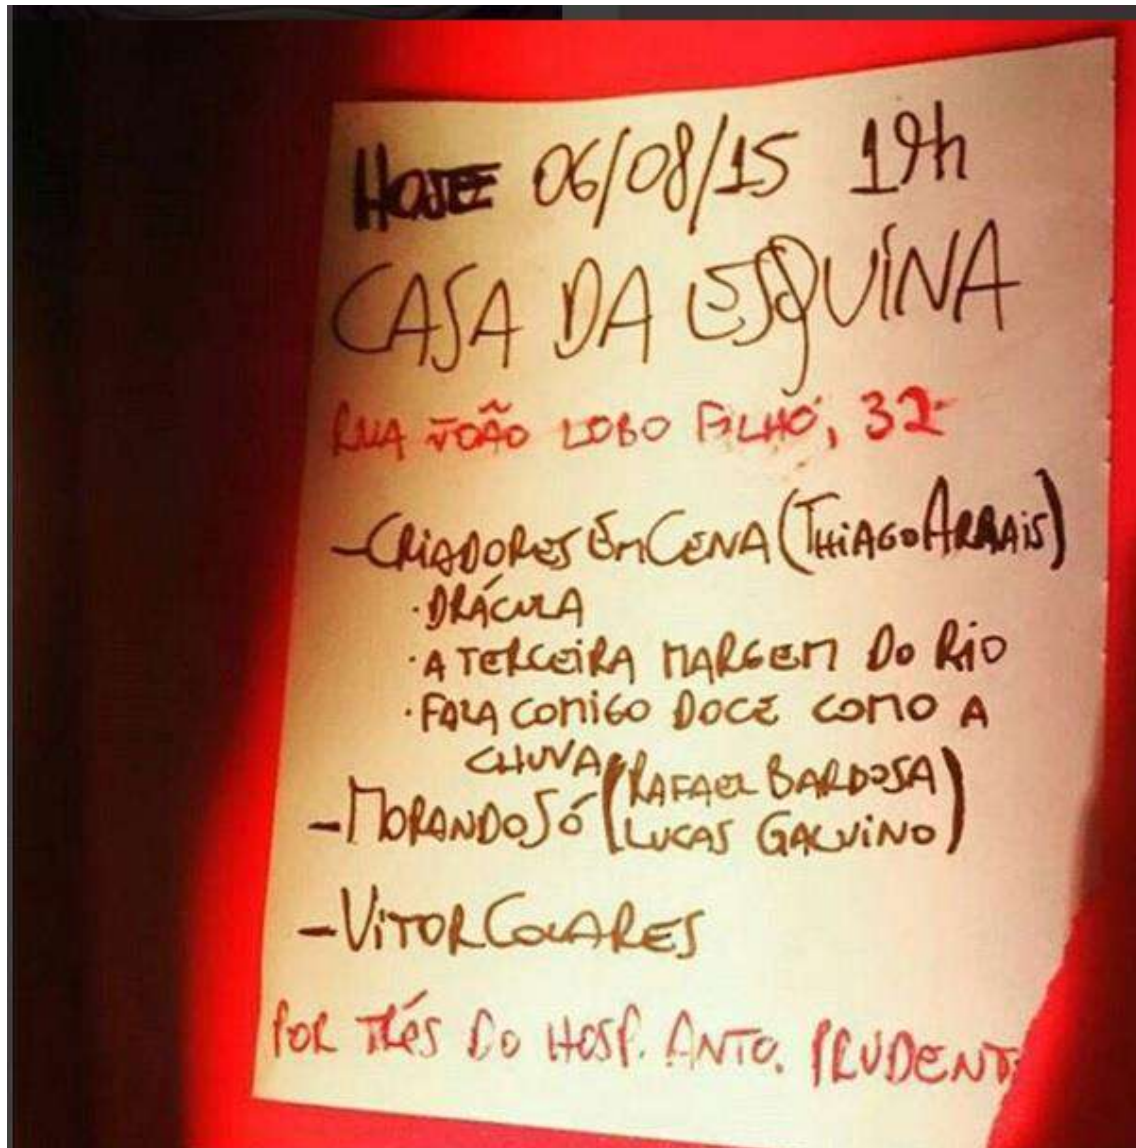 HOJE 06/08/15 19h
CASA DA ESQUINA
RUA JOÃO LOBO FILHO, 32
-CRIADORES EM CENA (THIAGO ARRAIS)
·DRÁCULA
·A TERCEIRA MARGEM DO RIO
·FALA COMIGO DOCE COMO A
CHUVA
-MORANDO SÓ (RAFAEL BARBOSA
LUCAS GALVINO)
-VITOR COLARES
POR TRÁS DO HOSP. ANTO. PRUDENT